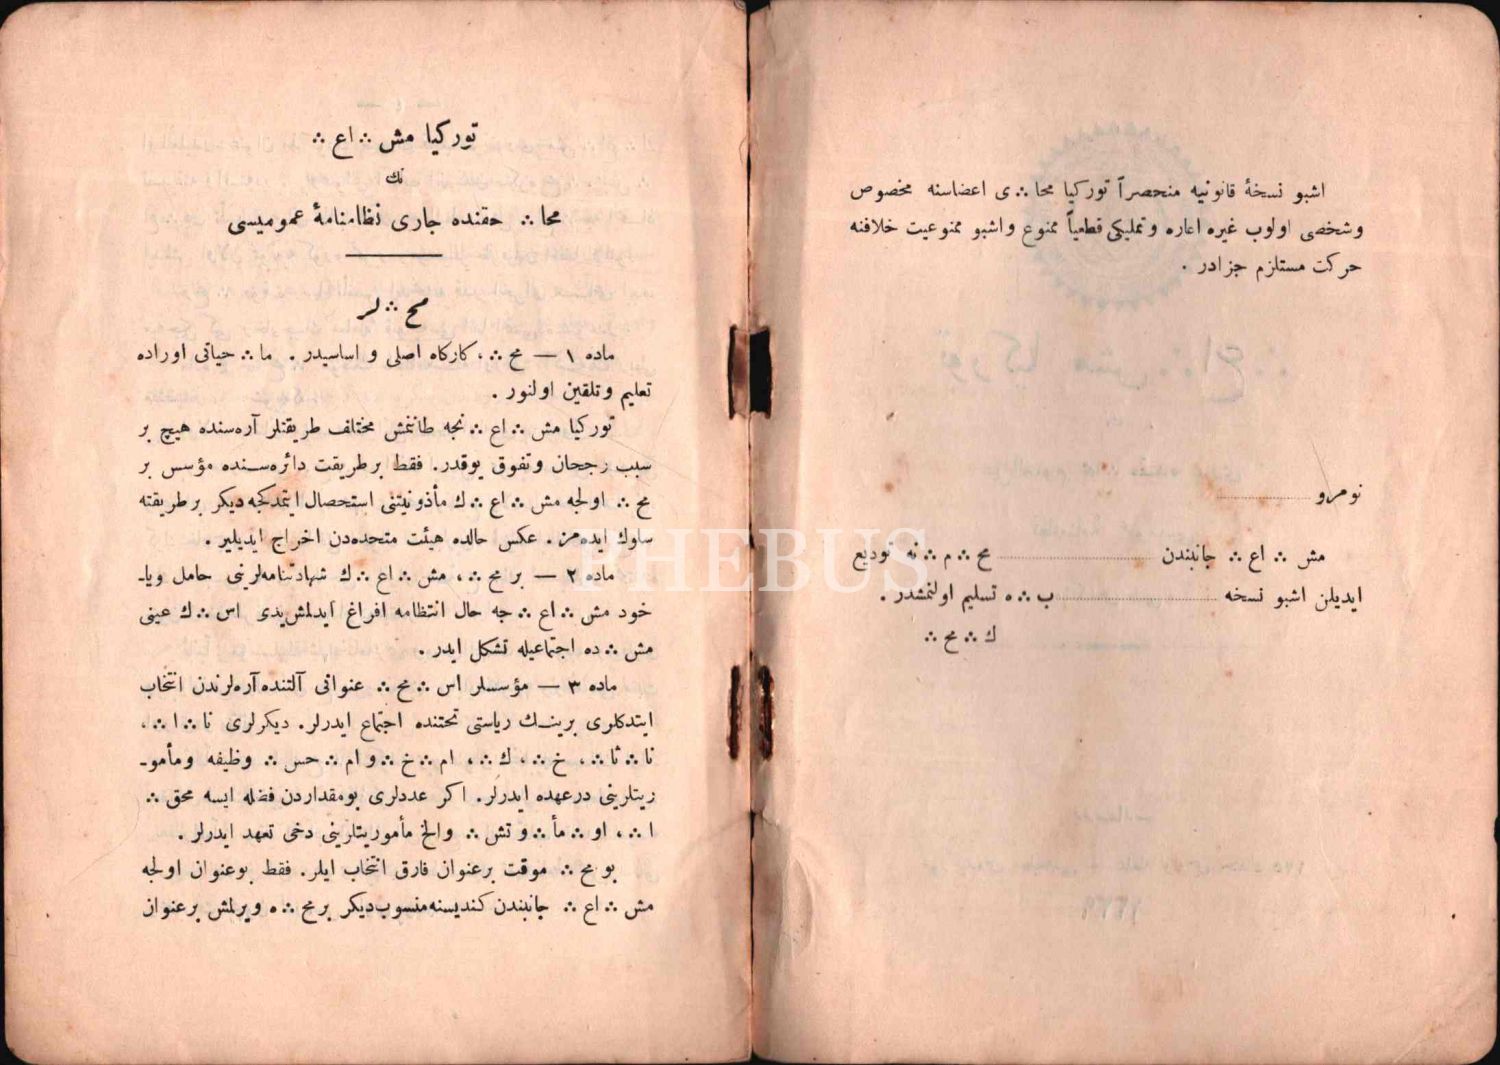 اشبو نسخۀ قانونیه منحصراً تورکیا محا∴ی اعضاسنه مخصوص
وشخصی اولوب غیره اعاره وتملیکی قطعیاً ممنوع واشبو ممنوعیت خلافنه
حرکت مستلزم جزادر .
نومرو ........
مش∴ اع∴ جانبندن ........ مح∴ م∴ نه تودیع
ایدیلن اشبو نسخه ........ ب∴ه تسلیم اولنمشدر .
ك∴ مح∴
تورکیا مش∴ اع∴
نك
محا∴ حقنده جاری نظامنامۀ عمومیسی
مح∴لر
ماده ١ — مح∴، کارکاه اصلی و اساسیدر . ما∴ حیاتی اوراده
تعلیم وتلقین اولنور .
تورکیا مش∴ اع∴ نجه طاننمش مختلف طریقتلر آره‌سنده هیچ بر
سبب رجحان وتفوق یوقدر. فقط بر طریقت دائره‌سنده مؤسس بر
مح∴ اولجه مش∴ اع∴ك مأذونیتنی استحصال ایتمدکجه دیکر بر طریقته
سلوك ایده‌مز . عکس حالده هیئت متحده‌دن اخراج ایدیلیر .
ماده ٢ — بر مح∴، مش∴ اع∴ك شهادتنامه‌لرنی حامل ویا‌ـ
خود مش∴ اع∴ جه حال انتظامه افراغ ایدلمش یدی اس∴ك عینی
مش∴ده اجتماعیله تشکل ایدر .
ماده ٣ — مؤسسلر اس∴ مح∴ عنوانی آلتنده آره‌لرندن انتخاب
ایتدکلری برینك ریاستی تحتنده اجتماع ایدرلر. دیکرلری نا∴ ا∴،
نا∴ ثا∴، خ∴، ك∴، ام∴ خ∴ و ام∴ حس∴ وظیفه ومأمو‌ـ
ریتلرینی درعهده ایدرلر. اکر عددلری بومقداردن فضله ایسه محق∴
ا∴، او∴ مأ∴ وتش∴ والخ مأموریتلرینی دخی تعهد ایدرلر .
بو مح∴ موقت بر عنوان فارق انتخاب ایلر. فقط بو عنوان اولجه
مش∴ اع∴ جانبندن کندیسنه منسوب دیکر بر مح∴ه ویرلمش بر عنوان
PHEBUS